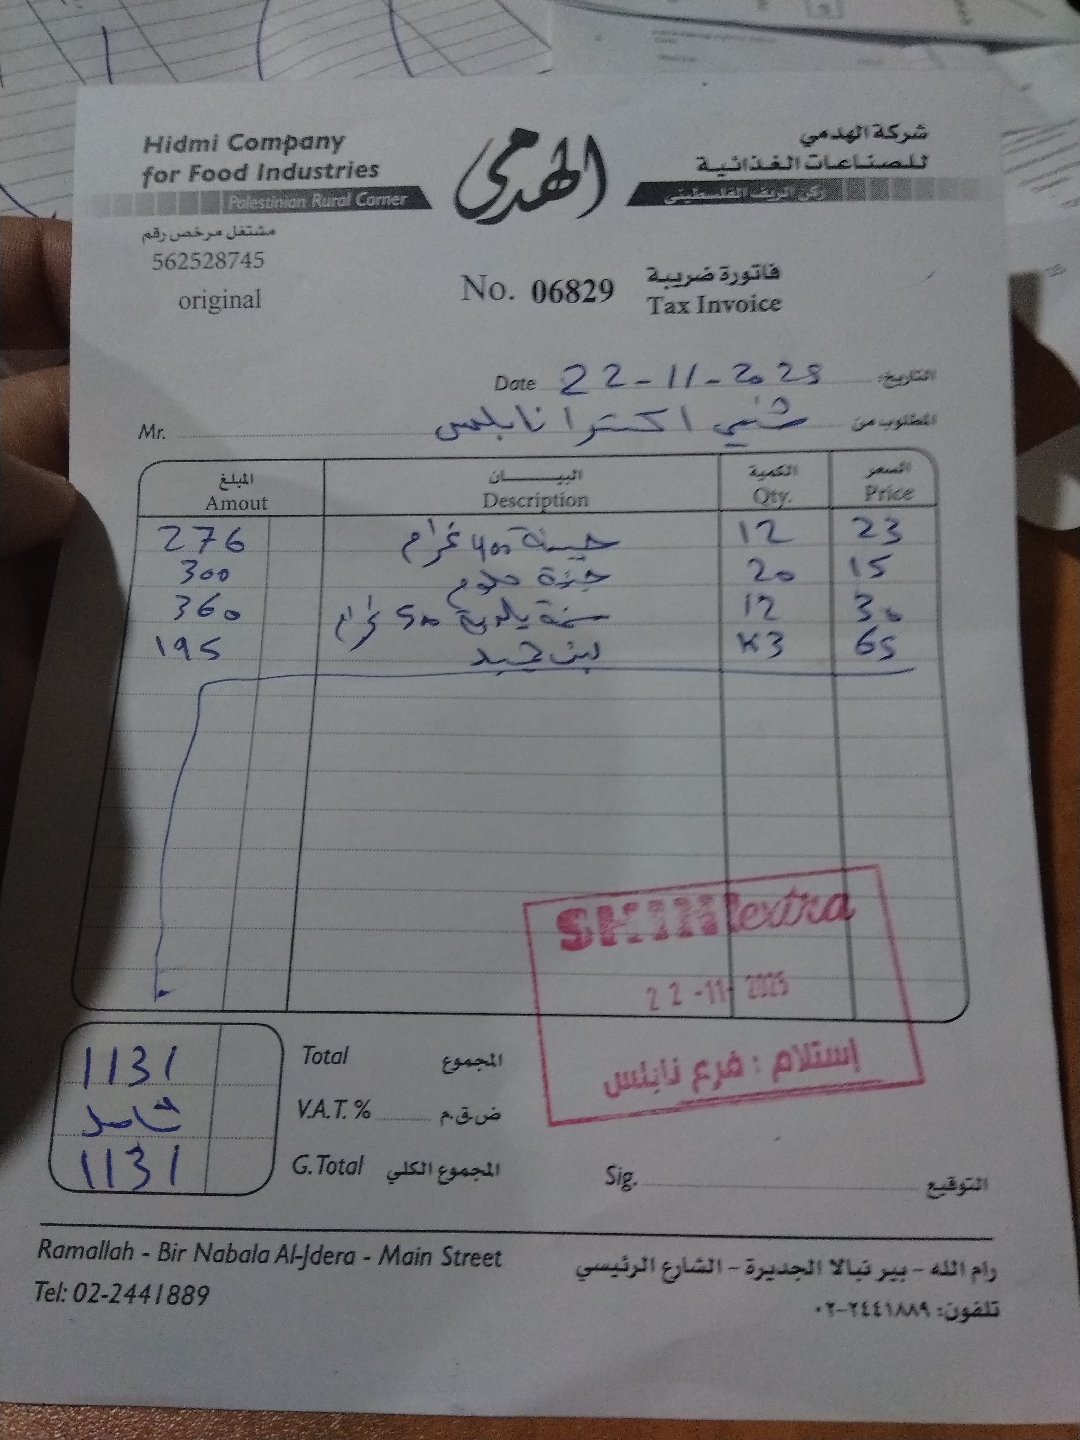 Hidmi Company
for Food Industries
Palestinian Rural Corner
الهدمي
شركة الهدمي
للصناعات الغذائية
ركن الريف الفلسطيني
مشتغل مرخص رقم
562528745
original
No. 06829
فاتورة ضريبة
Tax Invoice
Date 22-11-2025 التاريخ:
Mr. شني اكسترا نابلس المطلوب من
المبلغ البيـــان الكمية السعر
Amout Description Qty. Price
276 جبنة 400 غرام 12 23
300 جبنة حلوم 20 15
360 سمنة بلدية 500 غرام 12 30
195 لبن جميد K3 65
SHINI extra
22-11-2025
إستلام : فرع نابلس
1131 Total المجموع
شامل V.A.T. % ض.ق.م
1131 G. Total المجموع الكلي
Sig. التوقيع
Ramallah - Bir Nabala Al-Jdera - Main Street
Tel: 02-2441889
رام الله - بير نبالا الجديرة - الشارع الرئيسي
تلفون: ٠٢-٢٤٤١٨٨٩